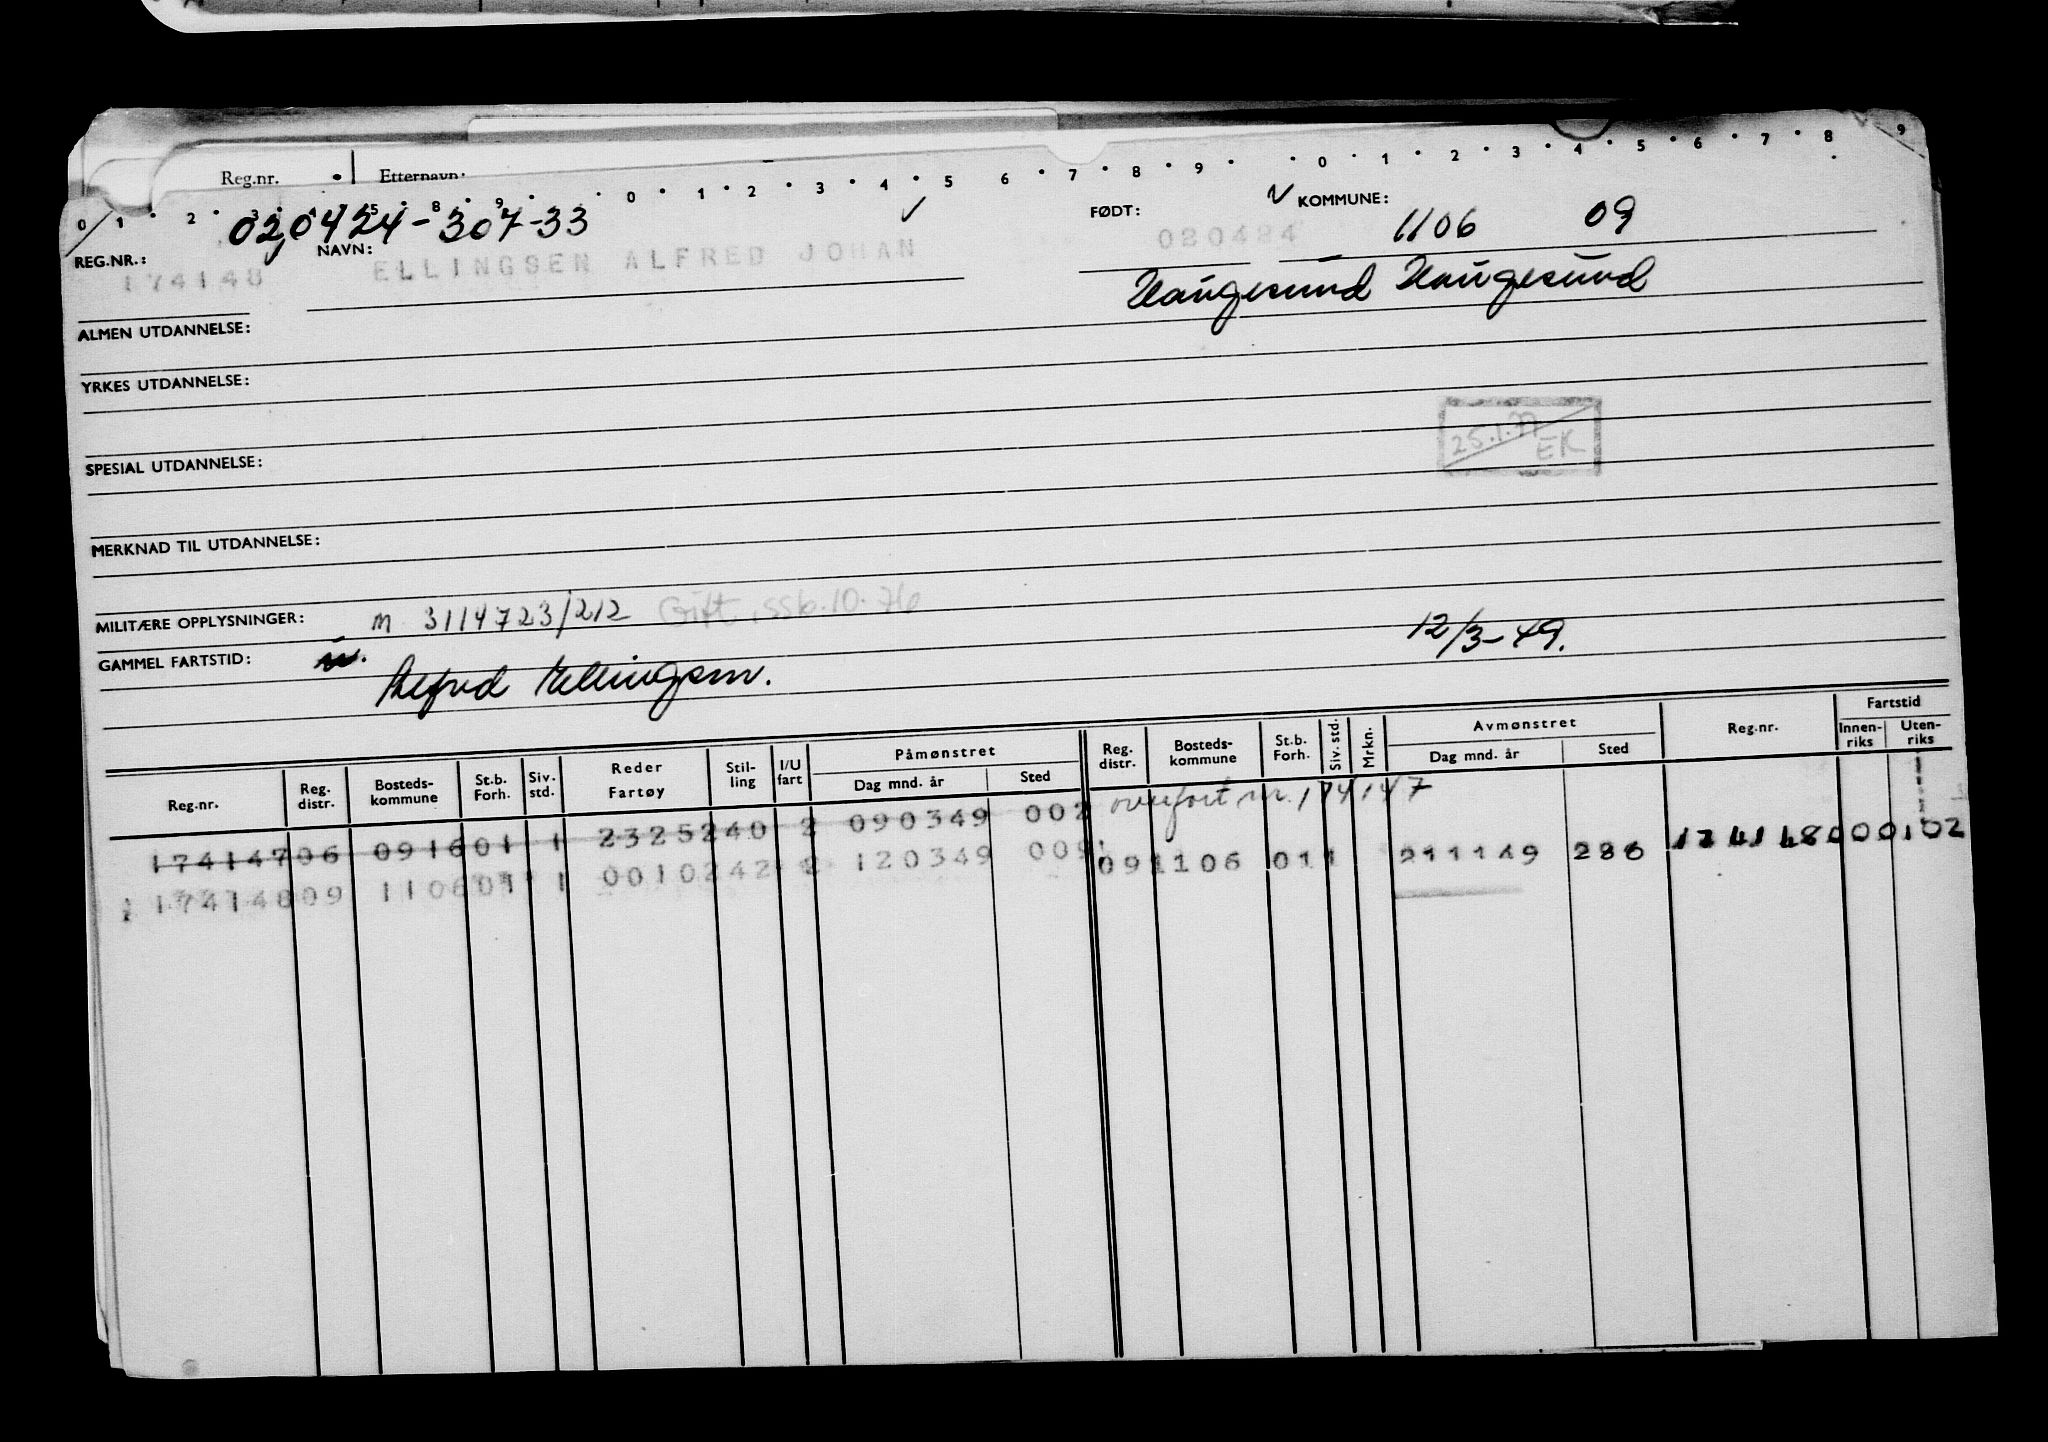 Reg.nr. Etternavn:
0 1 2 3 4 5 8 9 0 1 2 3 4 5 6 7 8 9 0 1 2 3 4 5 6 7 8 9
020424-307-33
REG.NR.: NAVN: FØDT: KOMMUNE: 1106 09
174148 ELLINGSEN ALFRED JOHAN 020424
Haugesund Haugesund
ALMEN UTDANNELSE:
YRKES UTDANNELSE:
25.1.77 EK
SPESIAL UTDANNELSE:
MERKNAD TIL UTDANNELSE:
MILITÆRE OPPLYSNINGER: M 3114723/212 Gift. ssb.10.76
GAMMEL FARTSTID: Alfred Ellingsen. 12/3-49.
Reg.nr. Reg. distr. Bosteds-kommune St.b. Forh. Siv. std. Reder Fartøy Stil-ling I/U fart Påmønstret Dag mnd. år Sted Reg. distr. Bosteds-kommune St.b. Forh. Siv. std. Mrkn. Avmønstret Dag mnd. år Sted Reg.nr. Fartstid Innen-riks Uten-riks
174147 06 0916 01 1 2325240 2 090349 002 overført nr. 174147
174148 09 1106 01 1 0010242 2 120349 009 09 1106 01 1 211149 286 174148 000 102